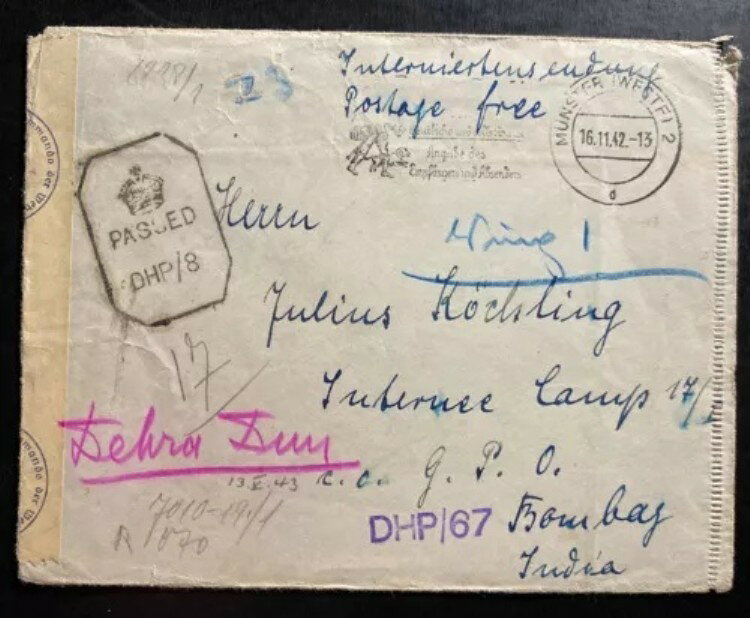 II 8
Interniertensendung
Postage free
MÜNSTER (WESTF) 2
16.11.42.-13
d
Angabe des
Empfängers und Absenders
PASSED
DHP/8
Herrn
Wing 1
Julius Köchling
17
Internee Camp 17/
Dehra Dun
13.V.43 c.o. G.P.O.
DHP/67 Bombay
India